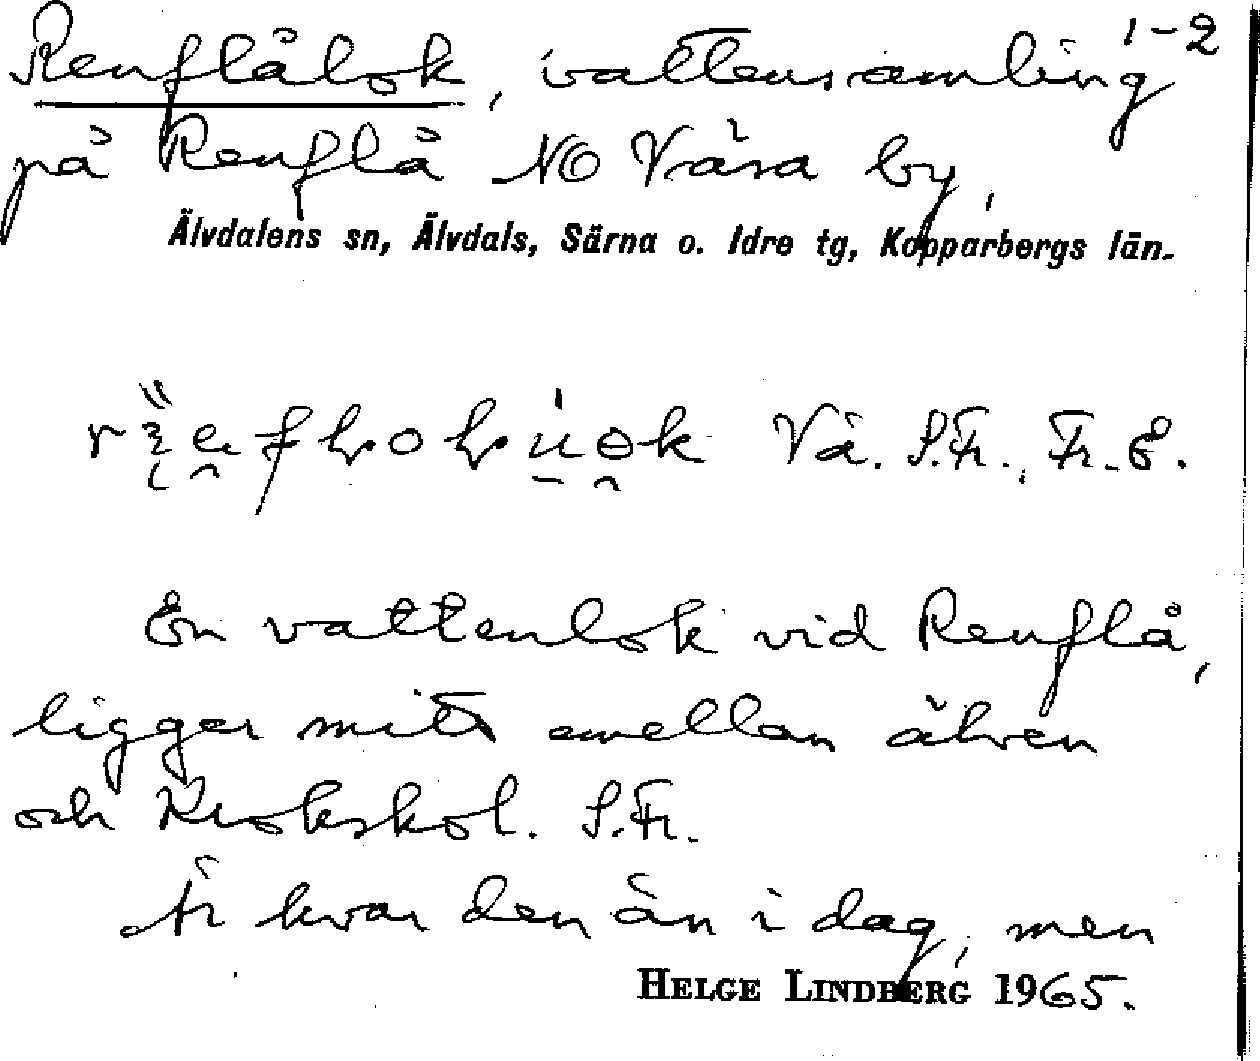 Renflålok, vattensamling 1-2
på Renflå NO Våsa by,
Älvdalens sn, Älvdals, Särna o. Idre tg, Kopparbergs län.
Vå. S.Fr., Fr.E.
En vattenlok vid Renflå,
ligger mitt emellan älven
och Krokskol. S.Fr.
Är kvar den än i dag, men
HELGE LINDBERG 1965.